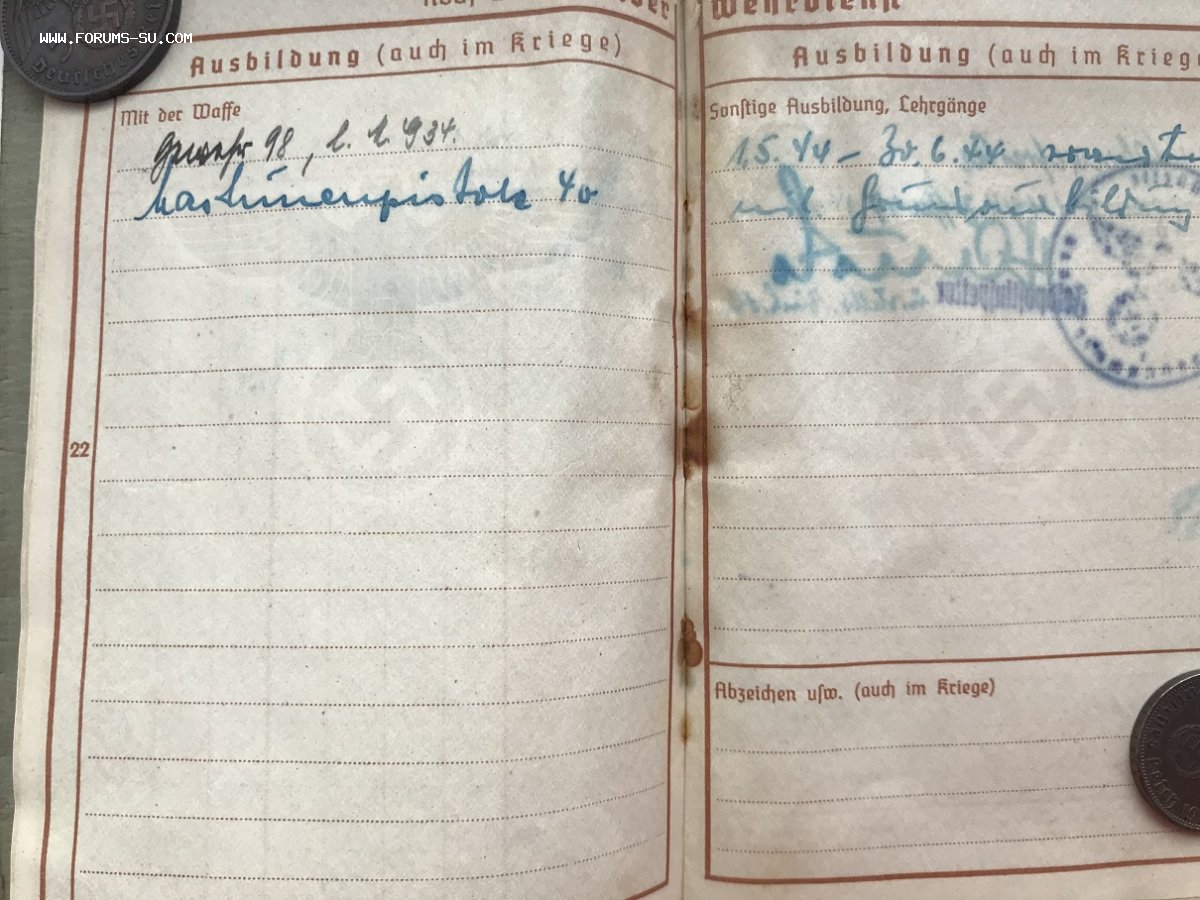 WWW.FORUMS-SU.COM
Deutsches
Wehrdienst
Ausbildung (auch im Kriege)
Mit der Waffe
Gewehr 98, l. M. G. 34.
Maschinenpistole 40
22
Ausbildung (auch im Kriege
Sonstige Ausbildung, Lehrgänge
1.5.44 – 30.6.44
Grundausbildung
Abzeichen usw. (auch im Kriege)